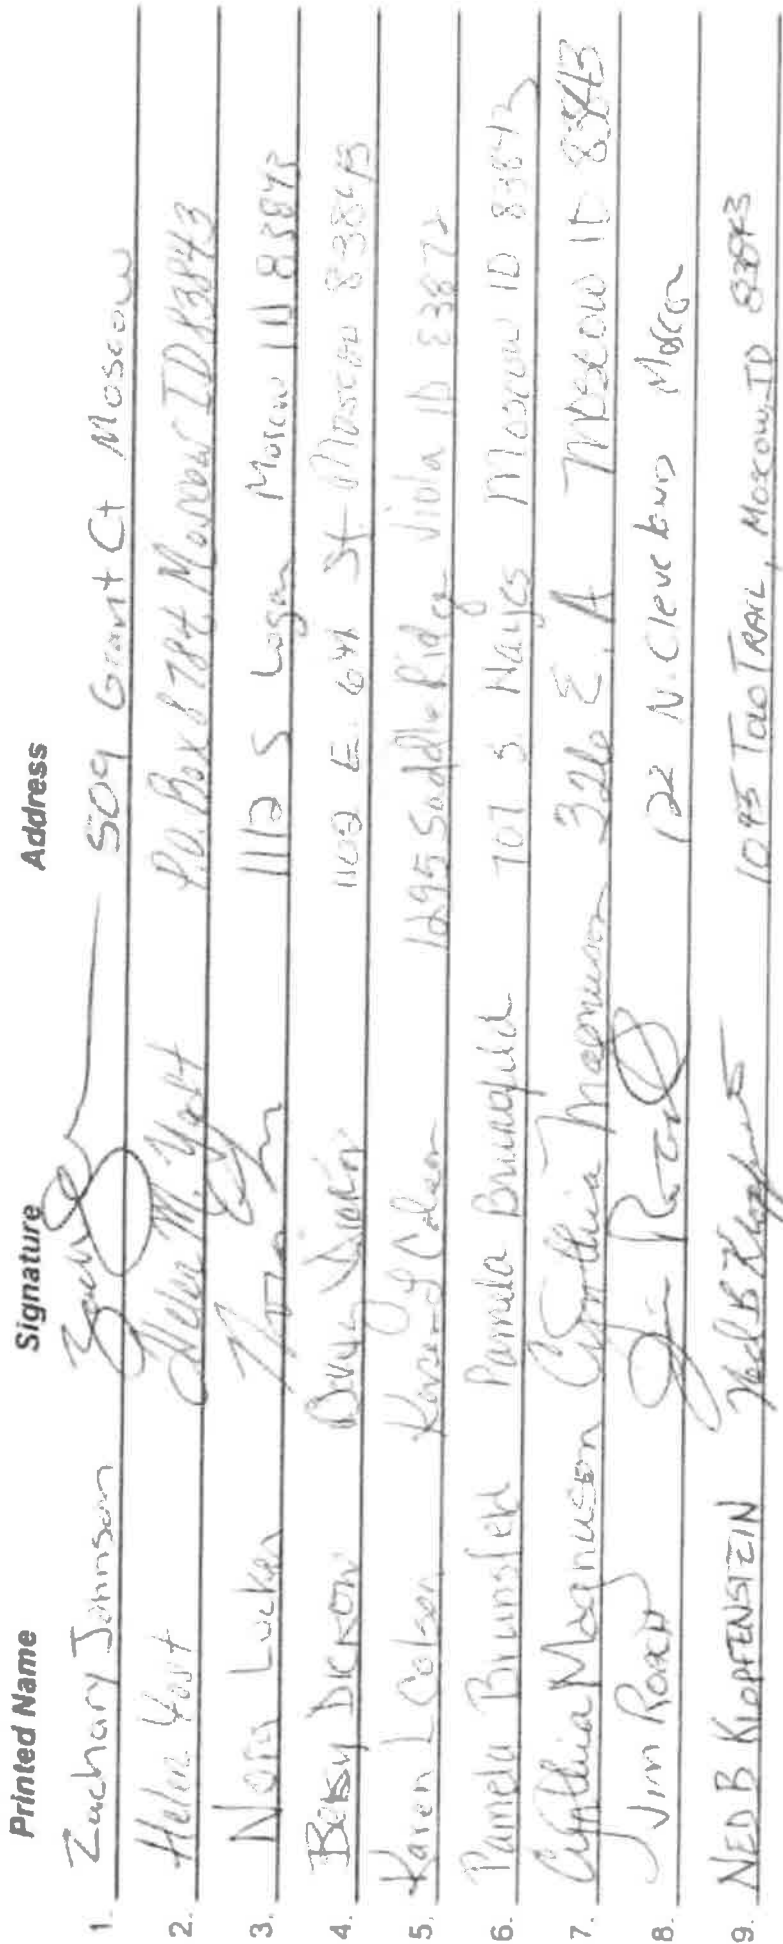 Printed Name Signature Address
1. Zachary Johnson Zach 509 Grant Ct Moscow
2. Helen Yost Helen M. Yost P.O. Box 8784 Moscow ID 83843
3. Nora Locken Nora 1112 S Logan Moscow ID 83843
4. Betsy Dickow Betsy Dickow 1102 E. 6th St Moscow 83843
5. Karen L Colson Karen L Colson 1295 Saddle Ridge Viola ID 83872
6. Pamela Brunsfeld Pamela Brunsfeld 707 S. Hayes Moscow ID 83843
7. Cynthia Magnuson Cynthia Magnuson 326 E. A Moscow ID 83843
8. Jim Roach Jim 122 N. Cleveland Moscow
9. NED B KLOPFENSTEIN Ned B 1045 TAO TRAIL, MOSCOW, ID 83843